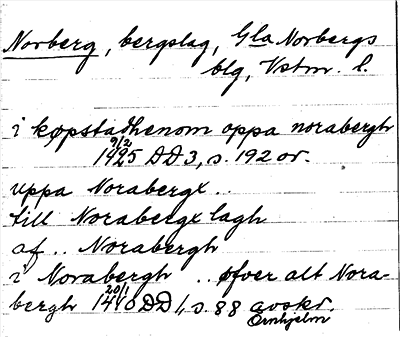 Norberg, bergslag, Gla Norbergs
blg, Vstm. l.
i køpstadhenom oppa norabergh
9/2
1425 DD 3, s. 192 or.
uppa Norabergx ..
till Norabergx lagh
af .. Norabergh
i Norabergh .. øfver alt Nora-
20/1
bergh 1410 DD 1, s. 88 avskr.
Örnhjelm